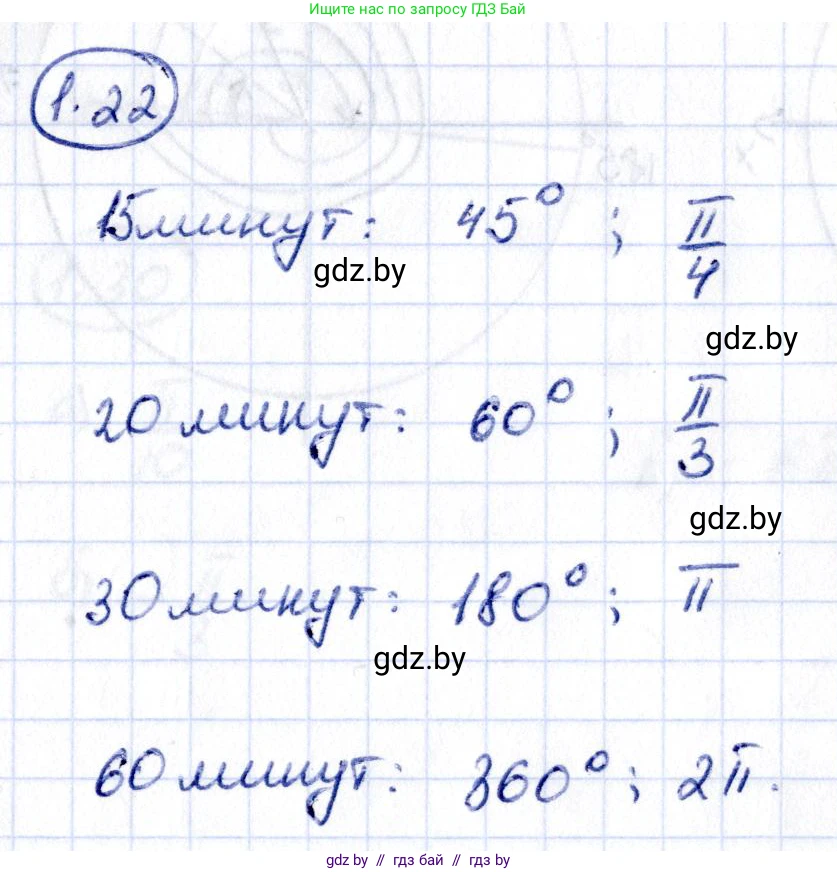 Ищите нас по запросу ГДЗ Бай
1.22
15 минут: 45°; π/4
gdz.by
gdz.by
20 минут: 60°; π/3
gdz.by
30 минут: 180°; π
gdz.by
60 минут: 360°; 2π.
gdz.by // гдз бай // gdz.by